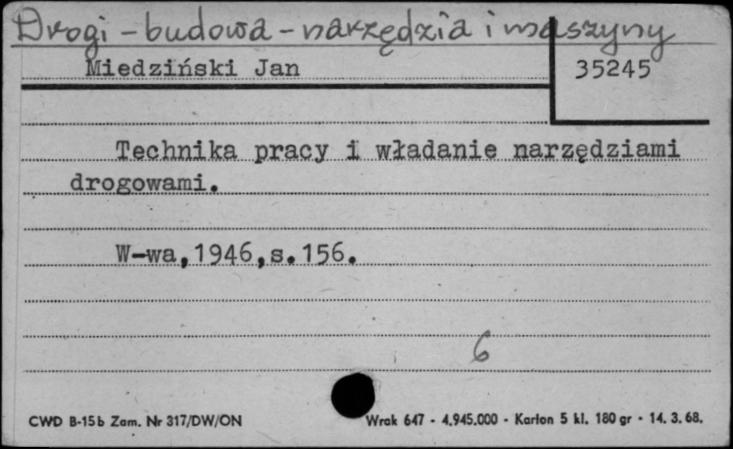 Drogi – budowa – narzędzia i maszyny
Miedziński Jan
35245
Technika pracy i władanie narzędziami
drogowami.
W-wa,1946,s.156.
6
CWD B-15b Zam. Nr 317/DW/ON
Wrak 647 - 4.945.000 - Karton 5 kl. 180 gr - 14. 3. 68.